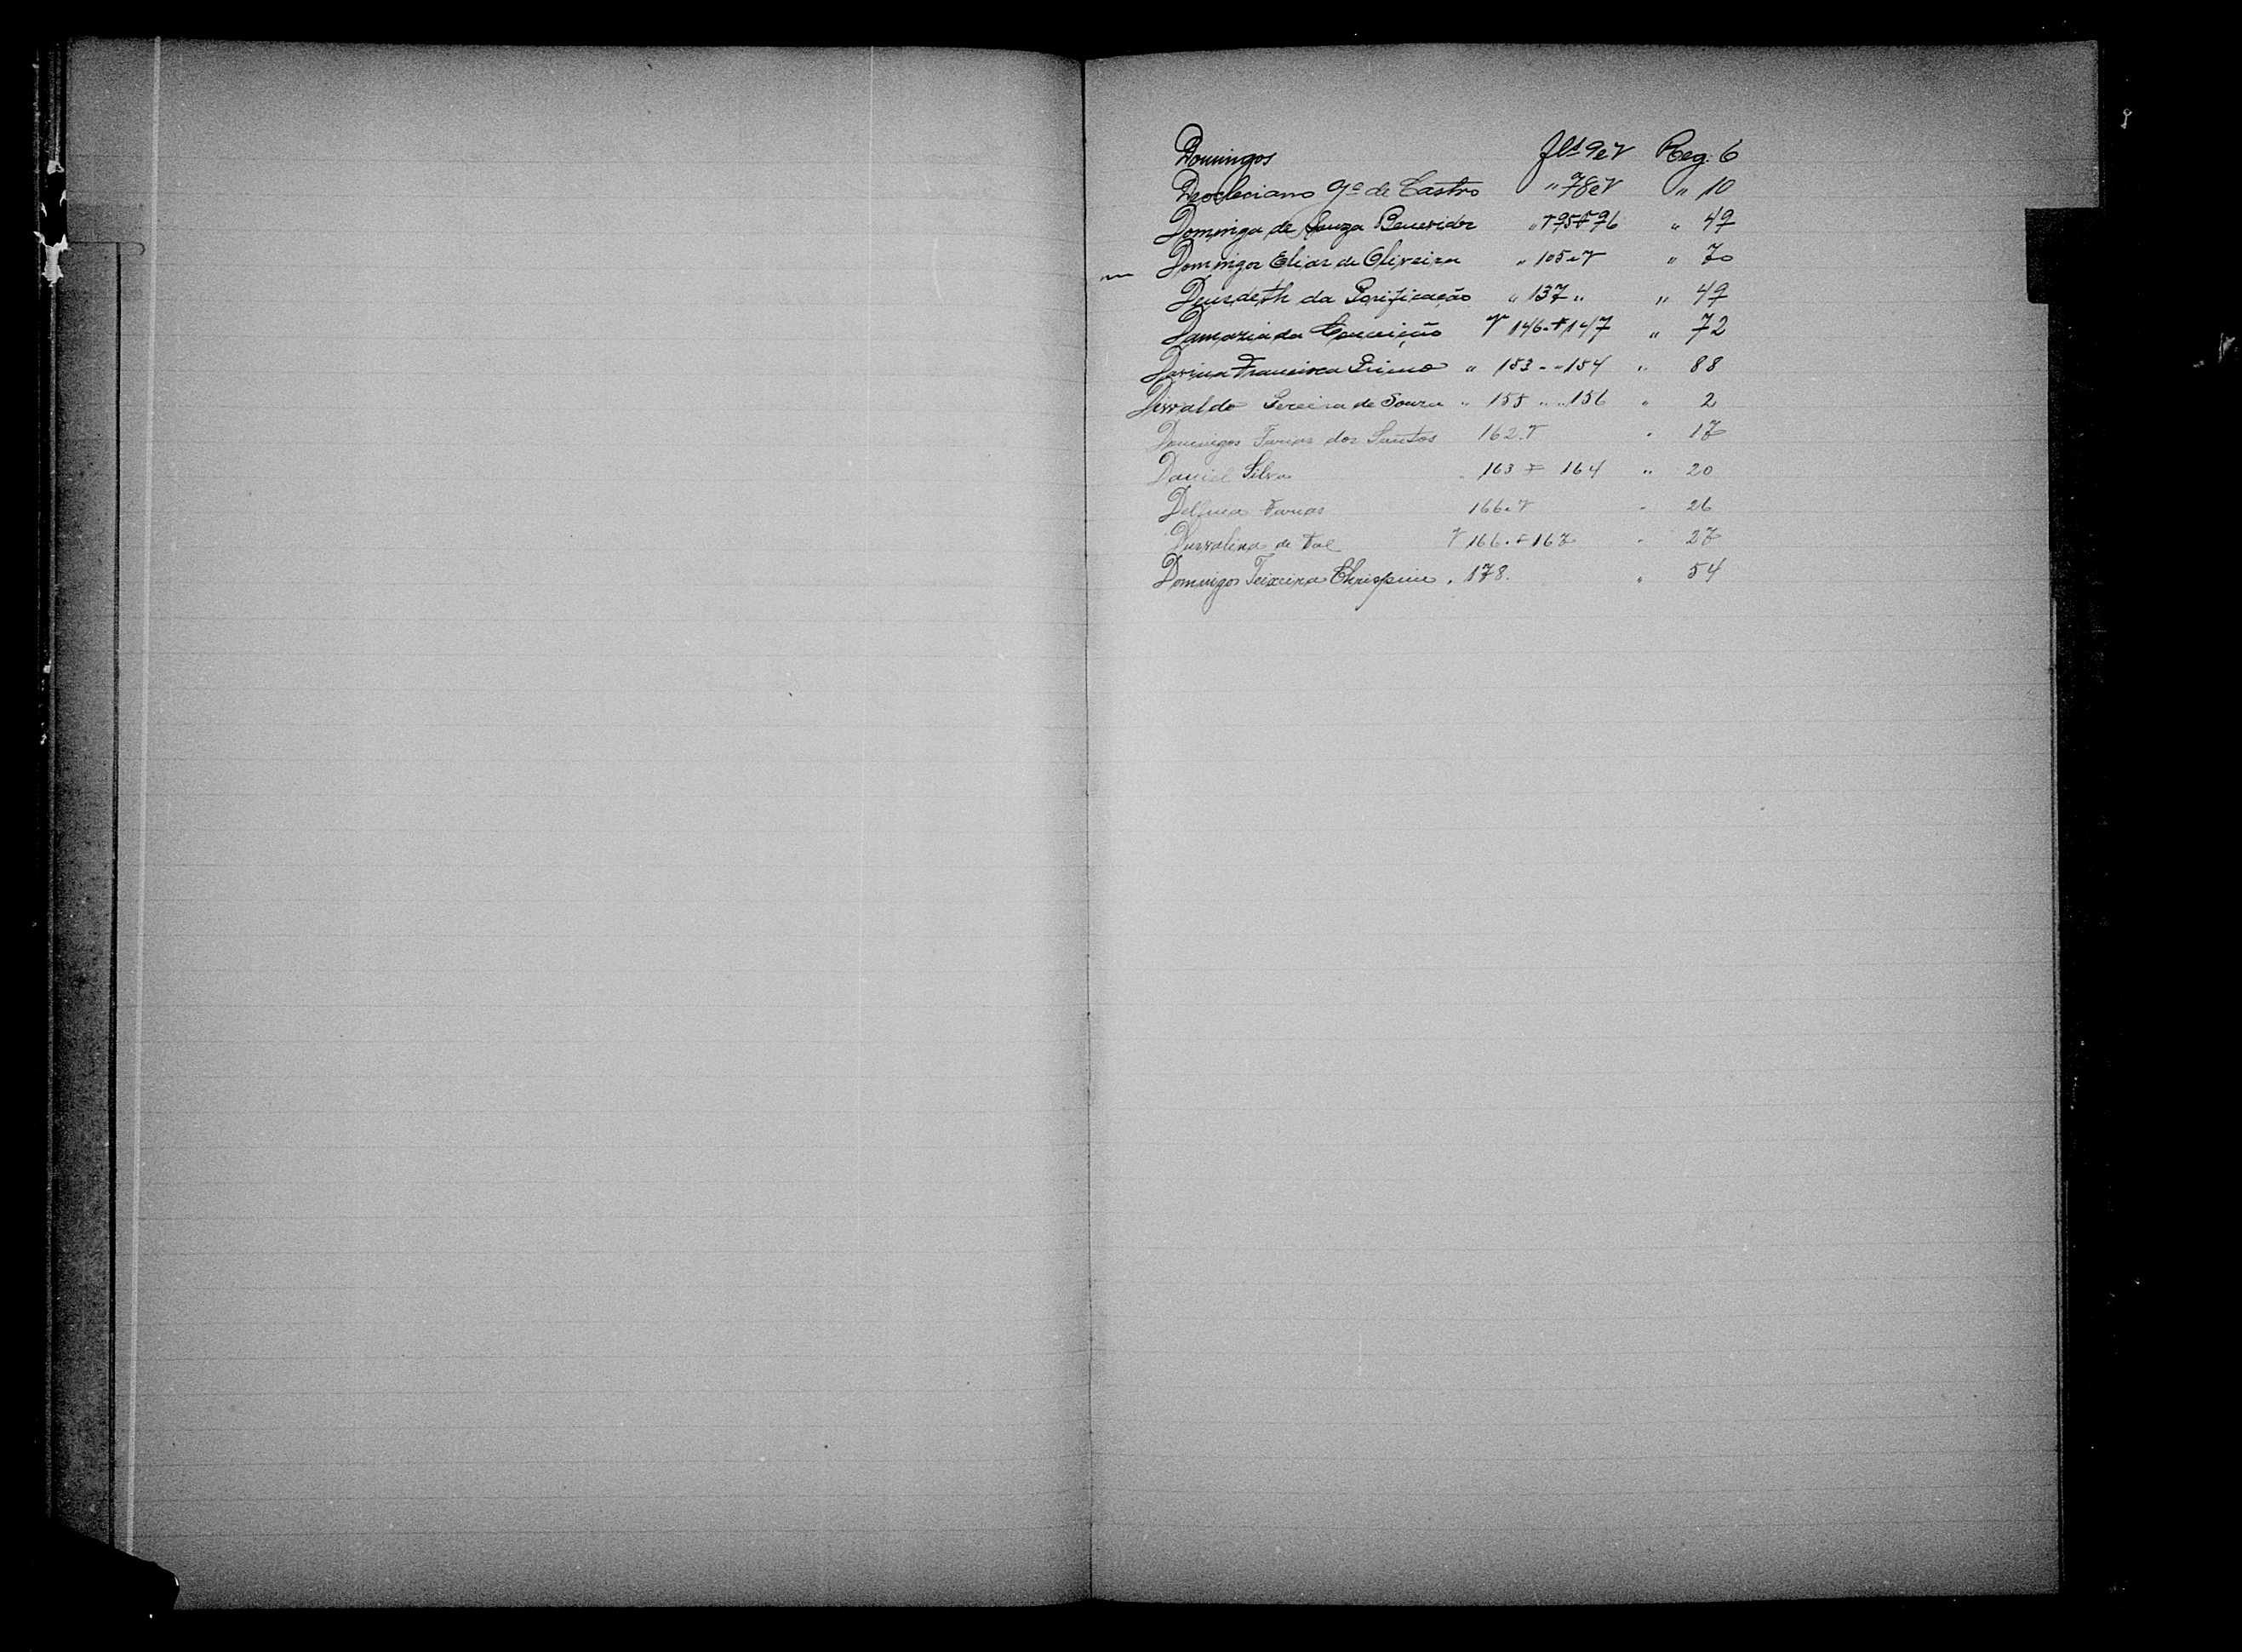 Domingos fls 9 e V Reg. 6
Deocleciano Gª de Castro " 78 e V " 10
Dominga de Souza Benevides " V 95 e 96 " 49
Domingos Elias de Oliveira " 105 e V " 70
Deusdeth da Purificação " 137 " " 49
Damazia da Conceição V 146 e 147 " 72
Francisca Primo " 153 - " 154 " 88
Pereira de Souza " 155 " " 156 " 2
Domingos Farias dos Santos 162 V " 17
Daniel Silva " 163 164 " 20
Delfina Farias 166 e V " 26
Durvalina de Tal V 166 e 167 " 27
Domingos Teixeira Chrispim " 178 . " 54